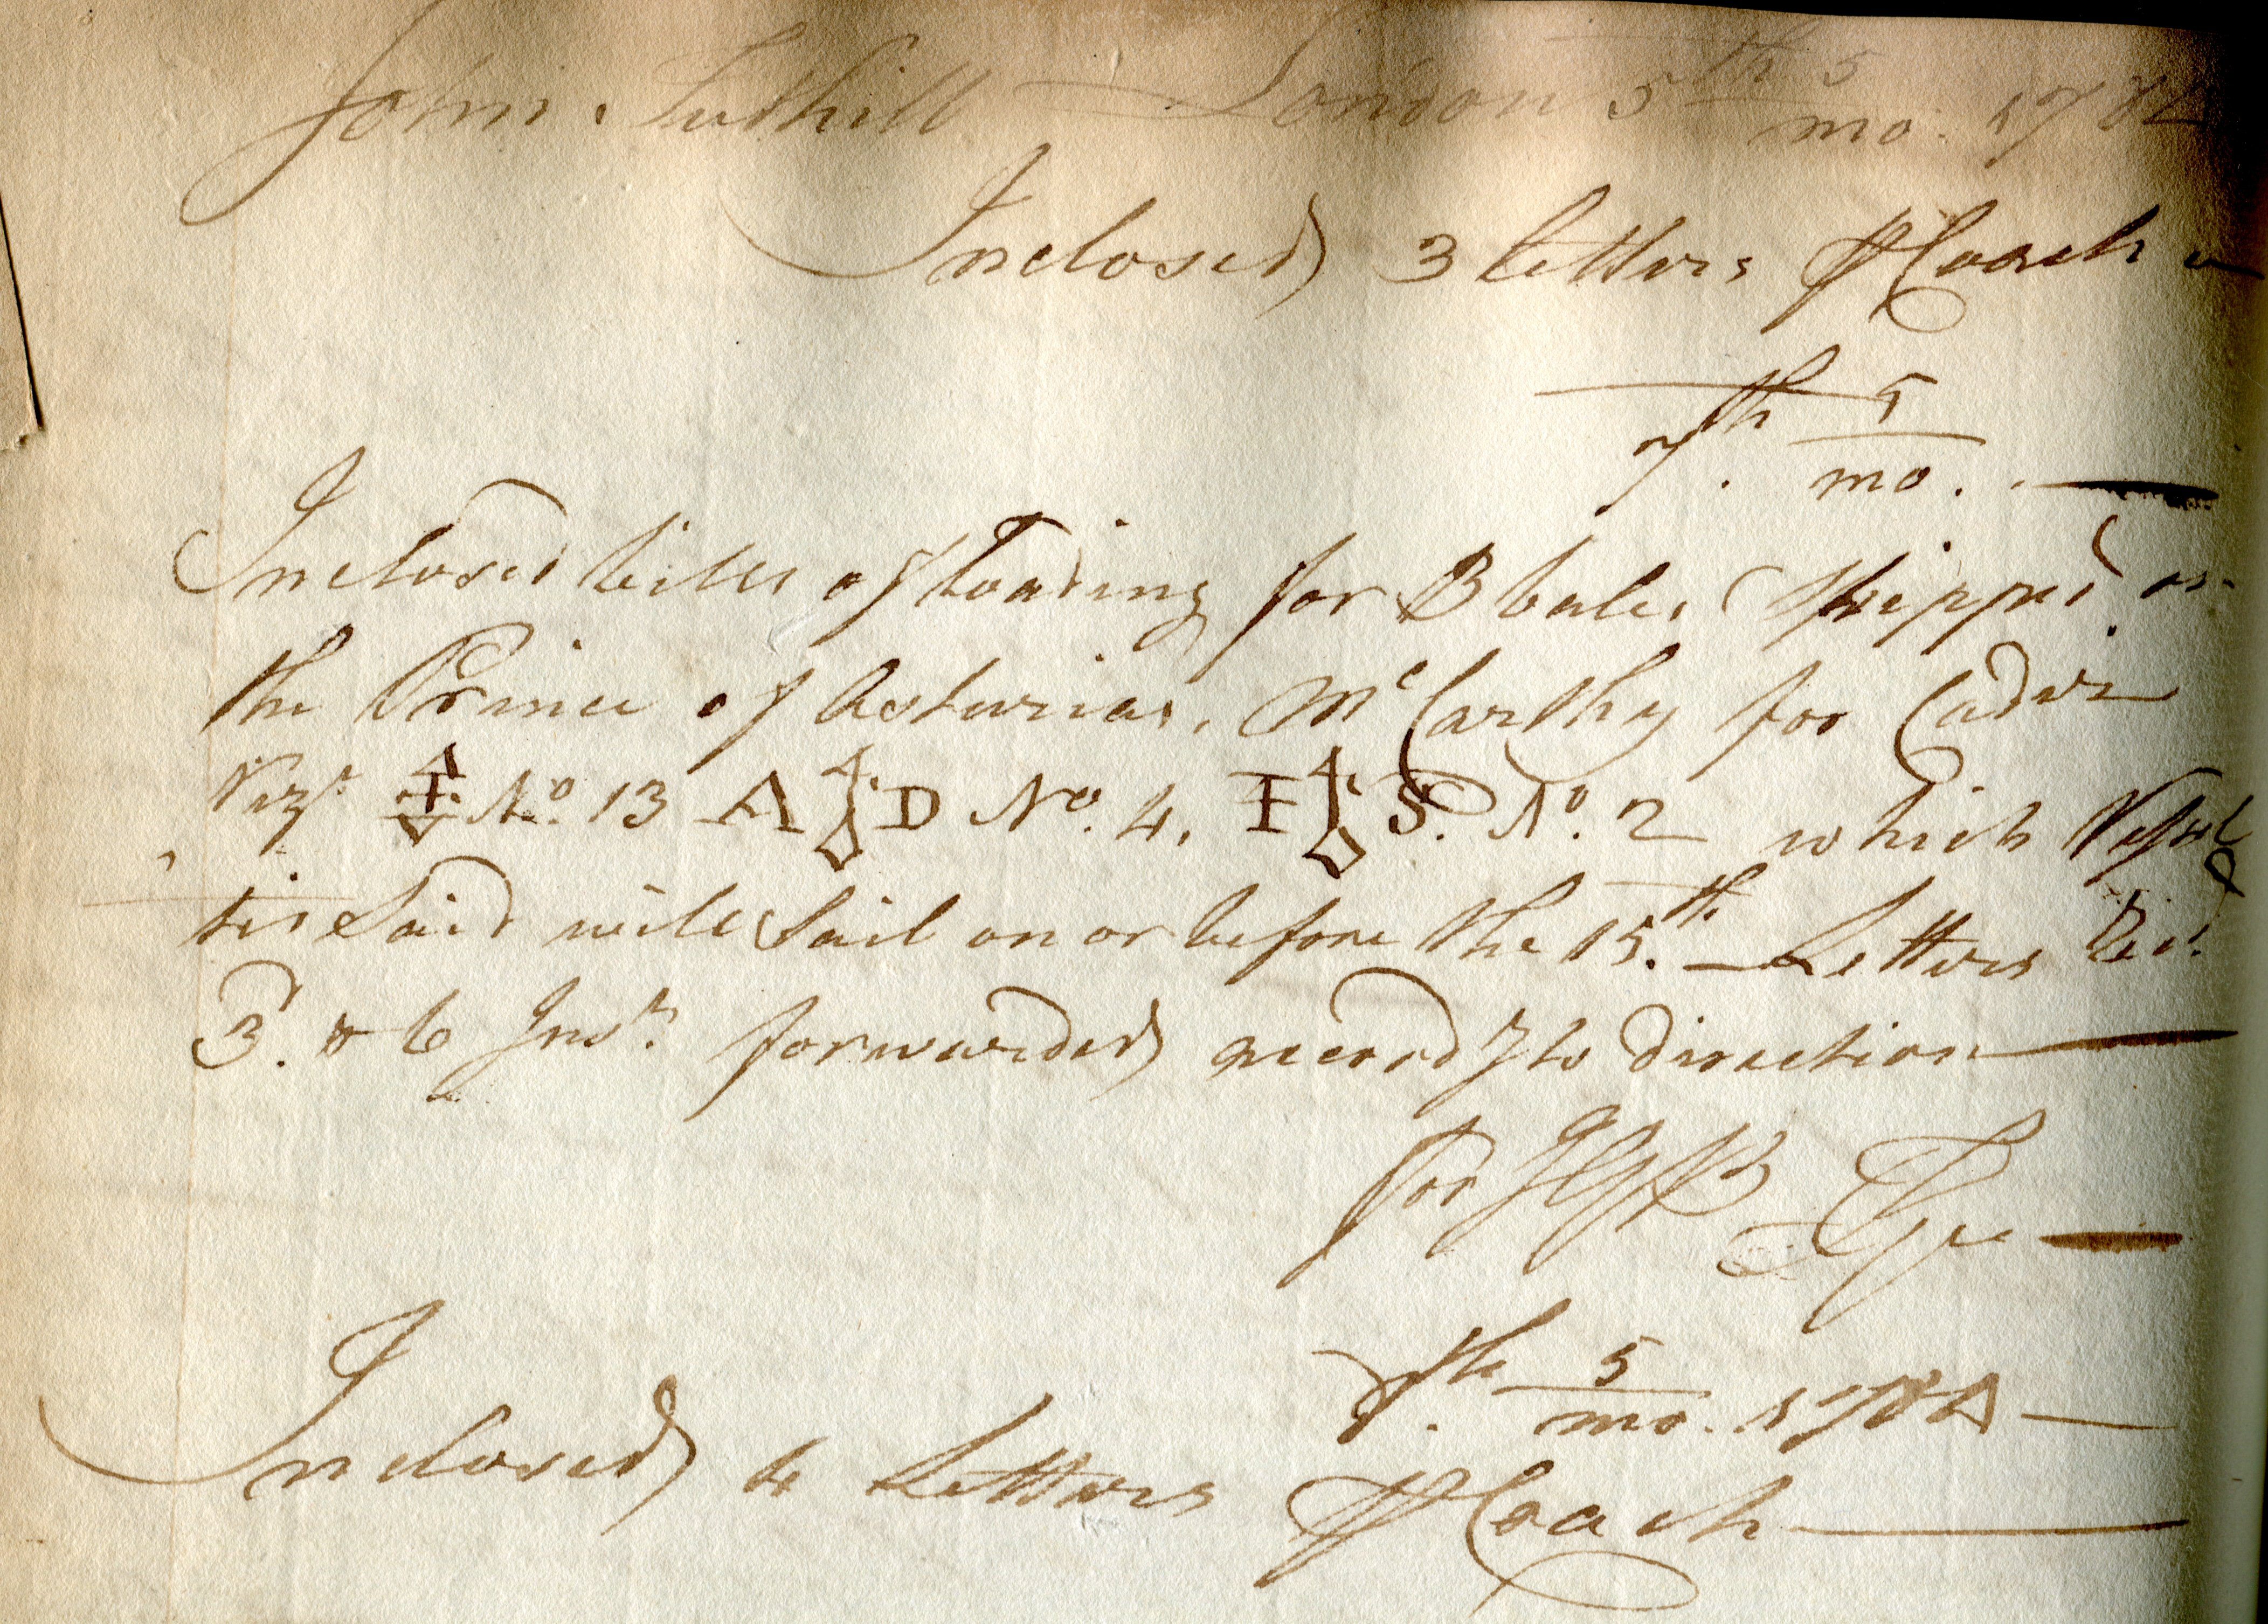 John Tuthill — London 5th 5/mo. 1784
Inclosed 3 letters ⅌ Coach
7th. 5/mo.
Inclosed bills of Loading for 3 bales Shipped on
the Prince of Asturias, McCarthy for Cadiz
Vizt. No. 13 A D No. 4, I S. No. 2 which Vessel
tis Said will Sail on or before the 15th. — Letters Recd.
3d. & 6 Inst. forwarded accordg to direction
for
5/mo. 1784 —
Inclosed 4 Letters ⅌ Coach